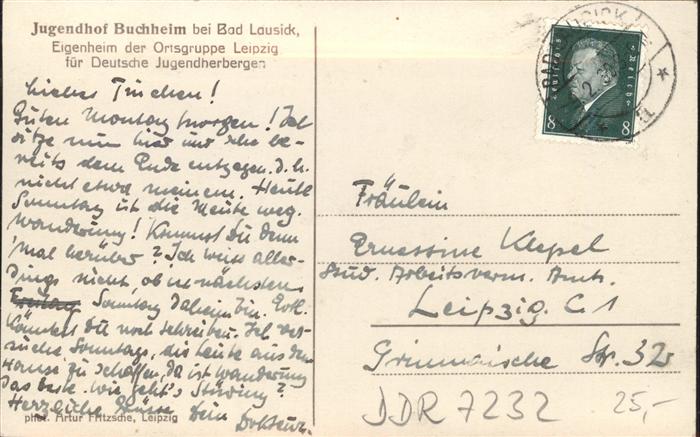 Jugendhof Buchheim bei Bad Lausick,
Eigenheim der Ortsgruppe Leipzig
für Deutsche Jugendherbergen
Liebes Tinchen!
Guten Montag morgen! Ich
sitze nun hier und sehe be-
reits dem Ende entgegen. D. h.
nicht etwa meinem. Heute
Sonntag ist die Meute weg.
Wanderung! Kommst Du denn
'mal herüber? Ich weiss aller-
dings nicht, ob ich nächsten
Sonntag daheim bin. Evtl.
könntest Du noch schreiben. Ich ver-
suche Sonntags, die Leute aus dem
Hause zu schaffen, da ist Wanderung
das beste. Wie geht's Stüwing?
Herzliche Grüsse Dein
phot. Artur Fritzsche, Leipzig
Deutsches Reich
8 8
BAD LAUSICK
Fräulein
Ernestine Klepel
Stud. Arbeitsverm. Amt.
Leipzig. C 1
Grimmaische Str. 32
DDR 7232 25,-